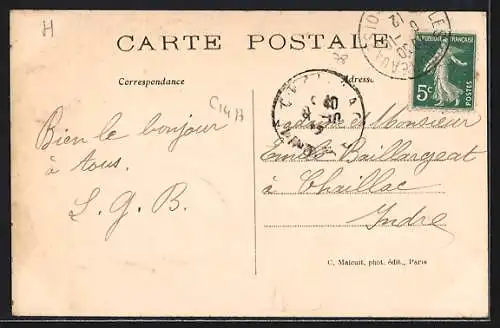 H
CARTE POSTALE
Correspondance
Adresse
RÉPUBLIQUE FRANÇAISE
5c
POSTES
C14H
Bien le bonjour
à tous.
L. G. B.
et Monsieur
Emile Baillargeat
à Chaillac
Indre
C. Malcuit, phot. édit., Paris